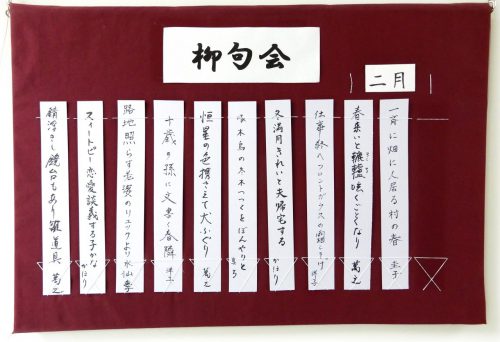 柳句会
二月
一斉に畑に人居る村の春 圭子
春来いと轆轤咲くごとくなり 萬之
仕事終へフロントガラスの
冬満月きれいと夫帰宅する かほり
啄木鳥の冬木つつくをぼんやりと
恒星の色携さえて犬ふぐり 萬之
十歳の孫に文書く春隣 洋子
路地照らす老婆のリュックより水仙
スイートピー恋愛談義する子かな かほり
錆浮きし鏡台もあり雛道具 萬之